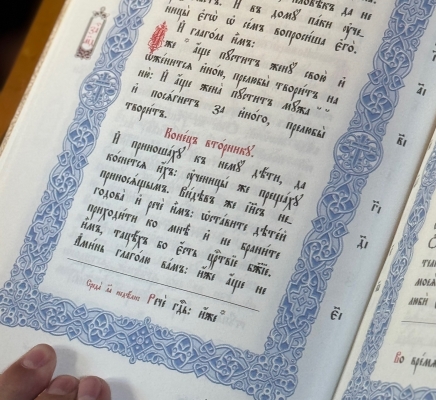 И҆ въ домꙋ̀ па́ки ᲂу҆че-
ницы̀ є҆гѡ̀ ѡ҆ се́мъ вопроси́ша є҆го̀.
а҃і
И҆ глаго́ла и҆̀мъ:
и҆́же а҆́ще пꙋ́ститъ женꙋ̀ свою̀ и҆
ѡ҆же́нитсѧ и҆но́ю, прелюбы̀ твори́тъ на
ню̀:
в҃і
и҆ а҆́ще жена̀ пꙋ́ститъ мꙋ́жа
и҆ посѧ́гнетъ за и҆но́го, прелюбы̀
твори́тъ.
Коне́цъ вто́рникꙋ.
г҃і
И҆ приноша́хꙋ къ немꙋ̀ дѣ́ти, да
ко́снетсѧ и҆́хъ: ᲂу҆чн҃цы́ же преща́хꙋ
приносѧ́щымъ.
д҃і
Ви́дѣвъ же і҆и҃съ не-
годова̀ и҆ речѐ и҆̀мъ: ѡ҆ста́вите дѣте́й
приходи́ти ко мнѣ̀ и҆ не брани́те
и҆̀мъ, тацѣ́хъ бо є҆́сть црⷭ҇твїе бж҃їе.
є҃і
А҆ми́нь глаго́лю ва́мъ: и҆́же а҆́ще не
Речѐ гдⷭ҇ь: и҆́же
Во вре́мѧ